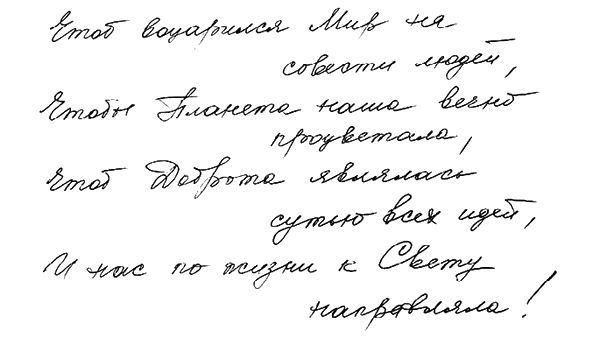 Чтоб воцарился Мир на
совести людей,
Чтобы Планета наша вечно
процветала,
Чтоб Доброта являлась
сутью всех идей,
И нас по жизни к Свету
направляла!